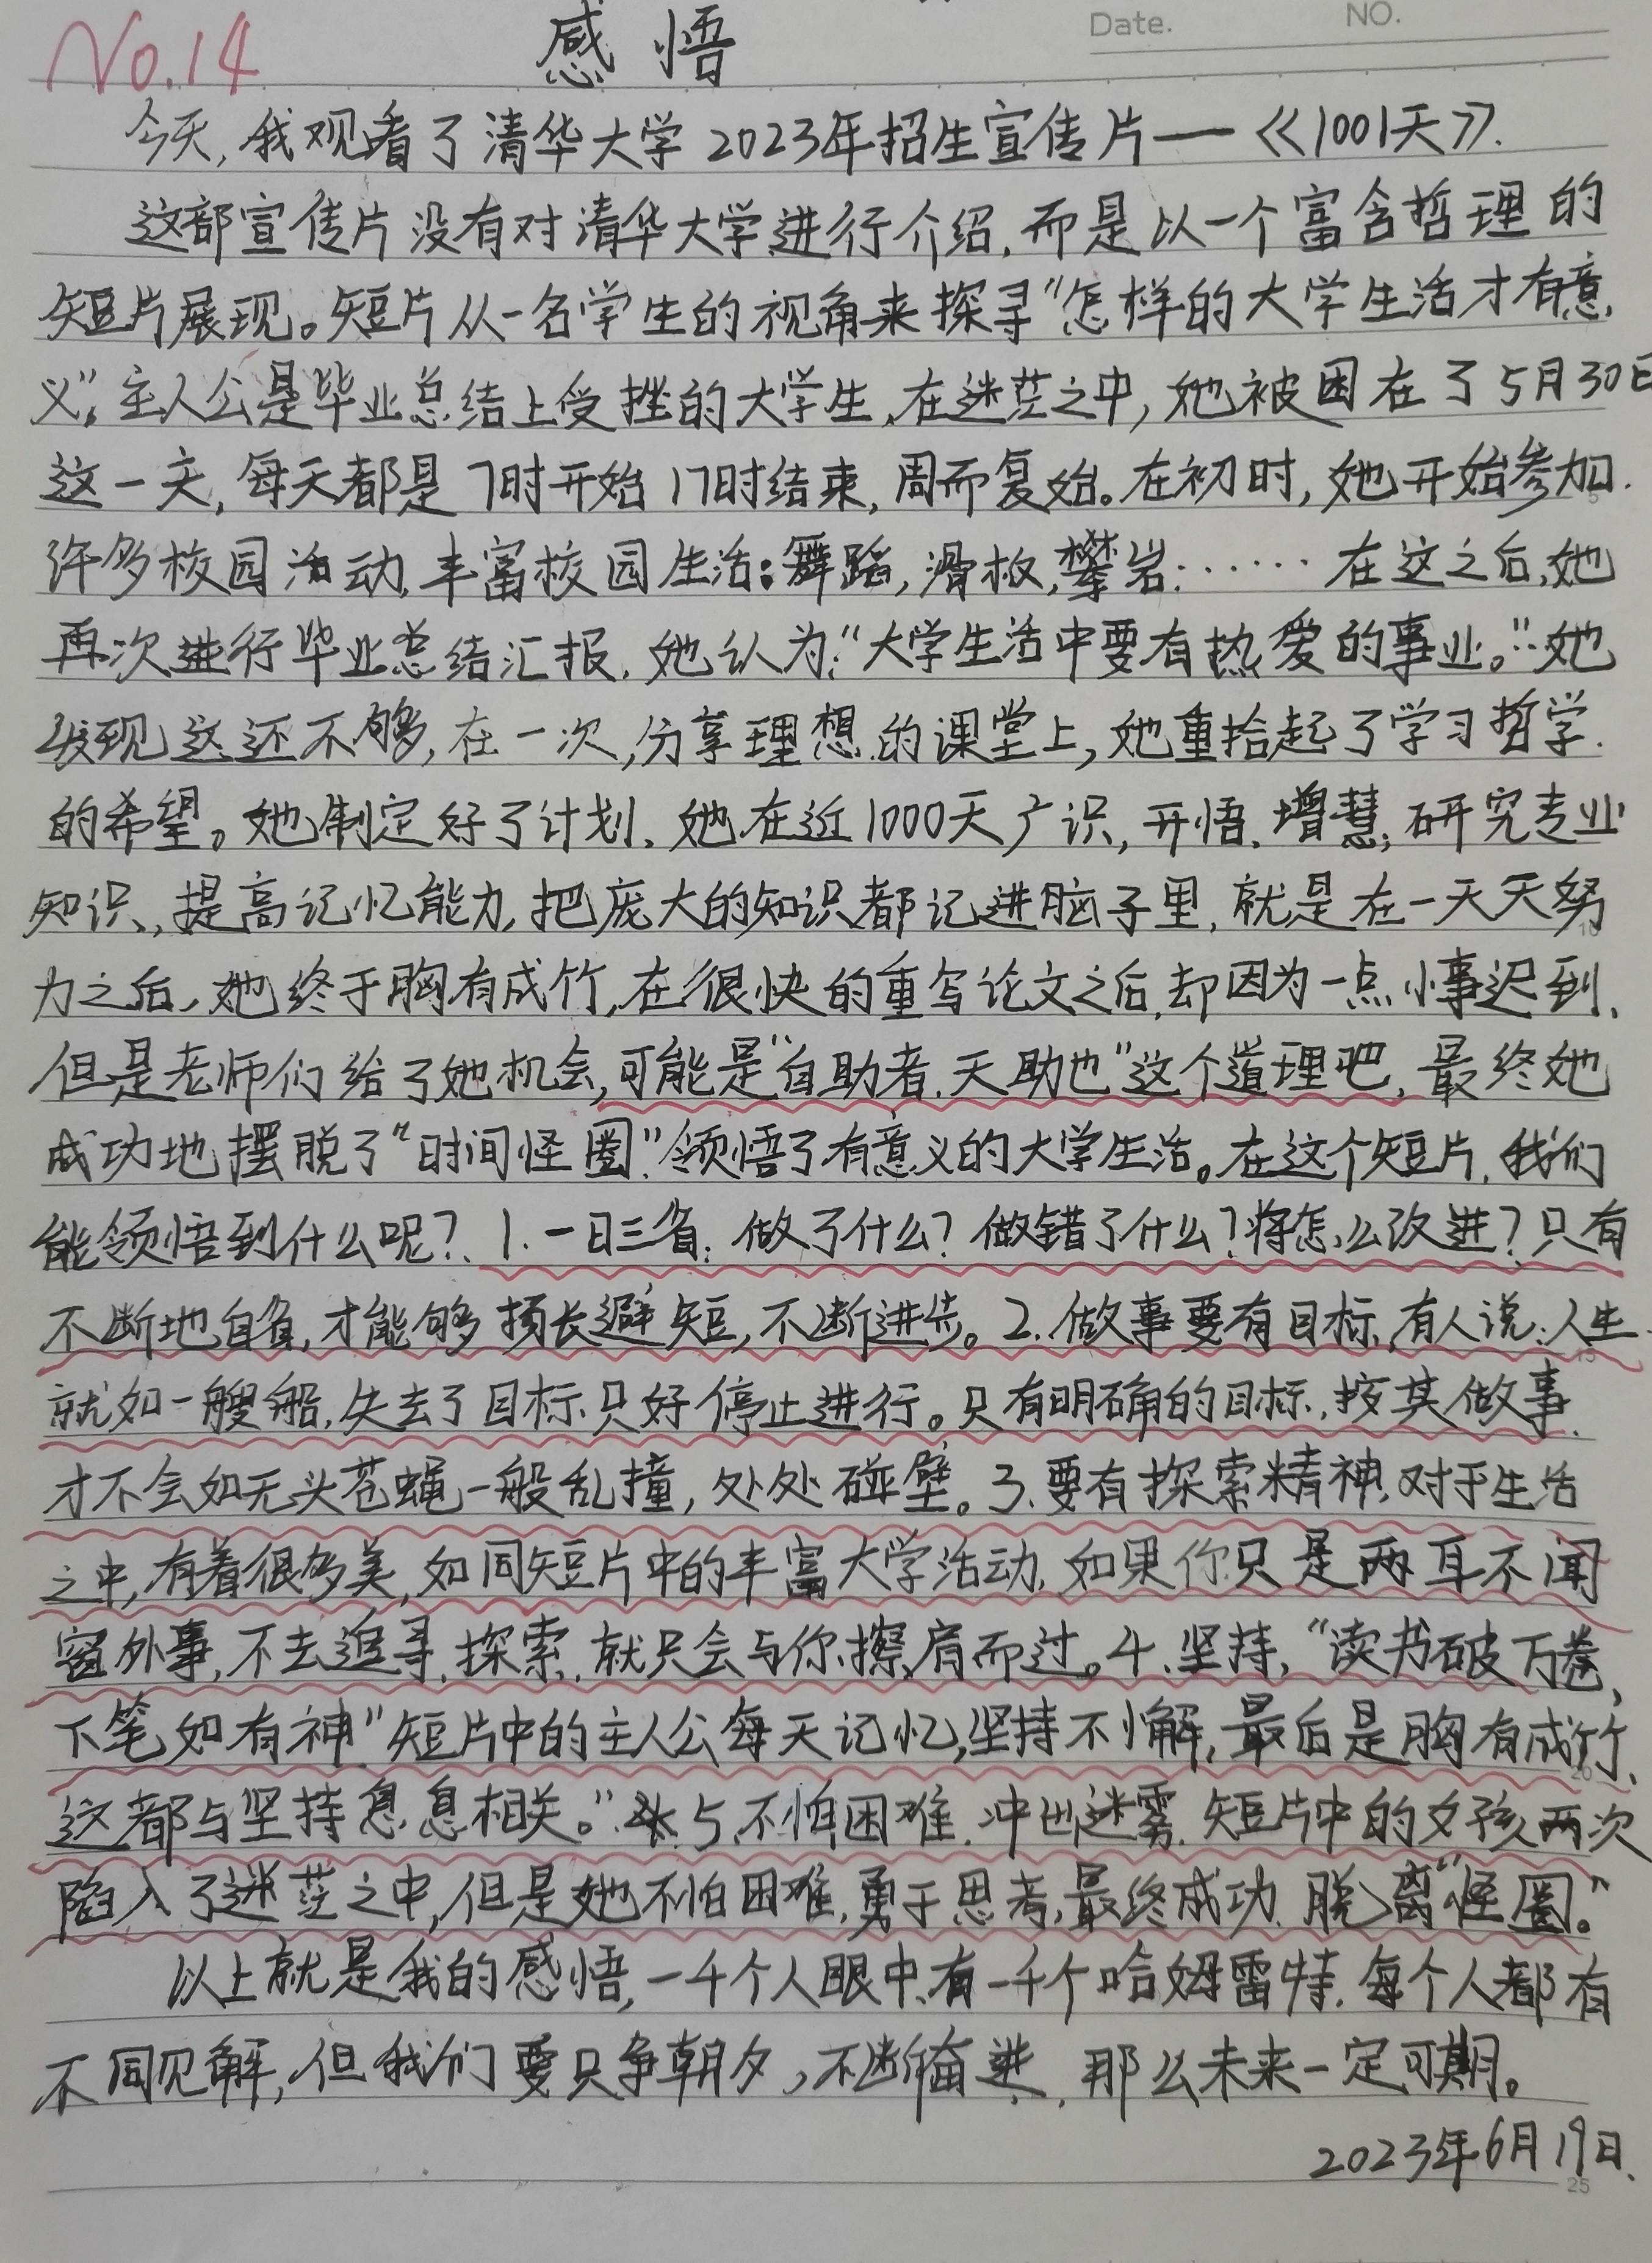 Date. NO.
No.14 感悟
今天,我观看了清华大学2023年招生宣传片——《1001天》.
这部宣传片没有对清华大学进行介绍,而是以一个富含哲理的
短片展现。短片从一名学生的视角来探寻"怎样的大学生活才有意
义",主人公是毕业总结上受挫的大学生,在迷茫之中,她被困在了5月30日
这一天,每天都是7时开始17时结束,周而复始。在初时,她开始参加
许多校园活动,丰富校园生活:舞蹈,滑板,攀岩……在这之后,她
再次进行毕业总结汇报,她认为:"大学生活中要有热爱的事业。"她
发现这还不够,在一次,分享理想的课堂上,她重拾起了学习哲学
的希望。她制定好了计划,她在近1000天广识,开悟,增慧,研究专业
知识,提高记忆能力,把庞大的知识都记进脑子里,就是在一天天努
力之后,她终于胸有成竹,在很快的重写论文之后,却因为一点小事迟到,
但是老师们给了她机会,可能是"自助者,天助也"这个道理吧,最终她
成功地摆脱了"时间怪圈",领悟了有意义的大学生活。在这个短片,我们
能领悟到什么呢?1.一日三省:做了什么?做错了什么?将怎么改进?只有
不断地自省,才能够扬长避短,不断进步。2.做事要有目标,有人说:人生
就如一艘船,失去了目标只好停止进行。只有明确的目标,按其做事
才不会如无头苍蝇一般乱撞,处处碰壁。3.要有探索精神,对于生活
之中,有着很多美,如同短片中的丰富大学活动,如果你只是两耳不闻
窗外事,不去追寻,探索,就只会与你擦肩而过。4.坚持,"读书破万卷,
下笔如有神"短片中的主人公每天记忆,坚持不懈,最后是胸有成竹,
这都与坚持息息相关。"5.不怕困难,冲出迷雾,短片中的女孩两次
陷入了迷茫之中,但是她不怕困难,勇于思考,最终成功脱离"怪圈。"
以上就是我的感悟,一千个人眼中有一千个哈姆雷特,每个人都有
不同见解,但我们要只争朝夕,不断奋进,那么未来一定可期。
2023年6月19日.
25